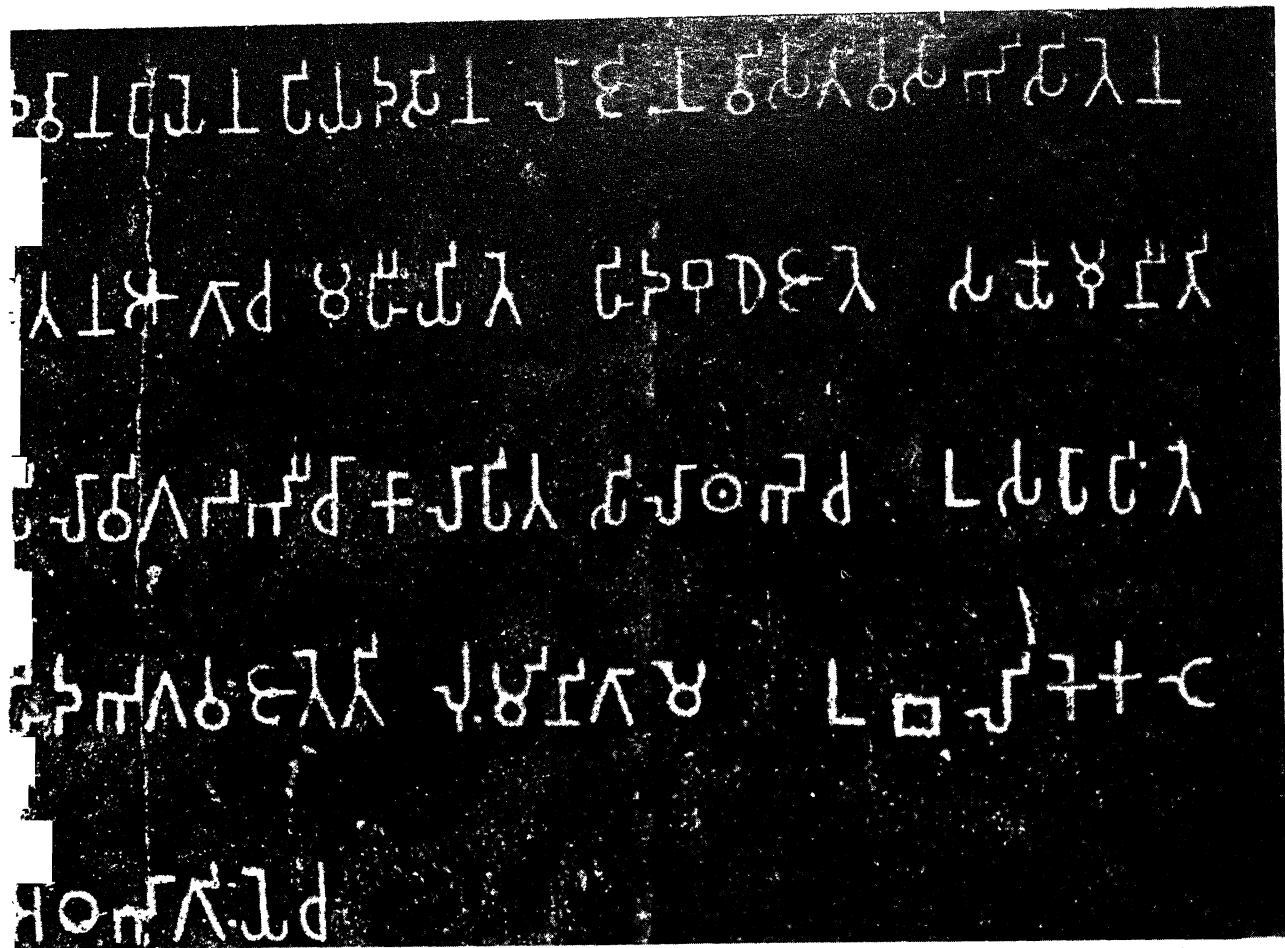 𑀤𑁂𑀯𑀸𑀦𑀧𑀺𑀬𑁂𑀦 𑀧𑀺𑀬𑀤𑀲𑀺𑀦 𑀮𑀸𑀚𑀺𑀦 𑀯𑀻𑀲𑀢𑀺𑀯𑀲𑀸𑀪𑀺𑀲𑀺𑀢𑁂𑀦
𑀅𑀢𑀦 𑀆𑀕𑀸𑀘 𑀫𑀳𑀻𑀬𑀺𑀢𑁂 𑀳𑀺𑀤 𑀩𑀼𑀥𑁂 𑀚𑀸𑀢𑁂 𑀲𑀓𑁆𑀬𑀫𑀼𑀦𑀻 𑀢𑀺
𑀲𑀺𑀮𑀸 𑀯𑀺𑀕𑀟𑀪𑀻 𑀘𑀸 𑀓𑀸𑀮𑀸𑀧𑀺𑀢 𑀲𑀺𑀮𑀸𑀣𑀪𑁂 𑀘 𑀉𑀲𑀧𑀸𑀧𑀺𑀢𑁂
𑀳𑀺𑀤 𑀪𑀕𑀯𑀁 𑀚𑀸𑀢𑁂 𑀢𑀺 𑀮𑀼𑀁𑀫𑀺𑀦𑀺 𑀕𑀸𑀫𑁂 𑀉𑀩𑀮𑀺𑀓𑁂 𑀓𑀝𑁂
𑀅𑀞𑀪𑀸𑀕𑀺𑀬𑁂 𑀘